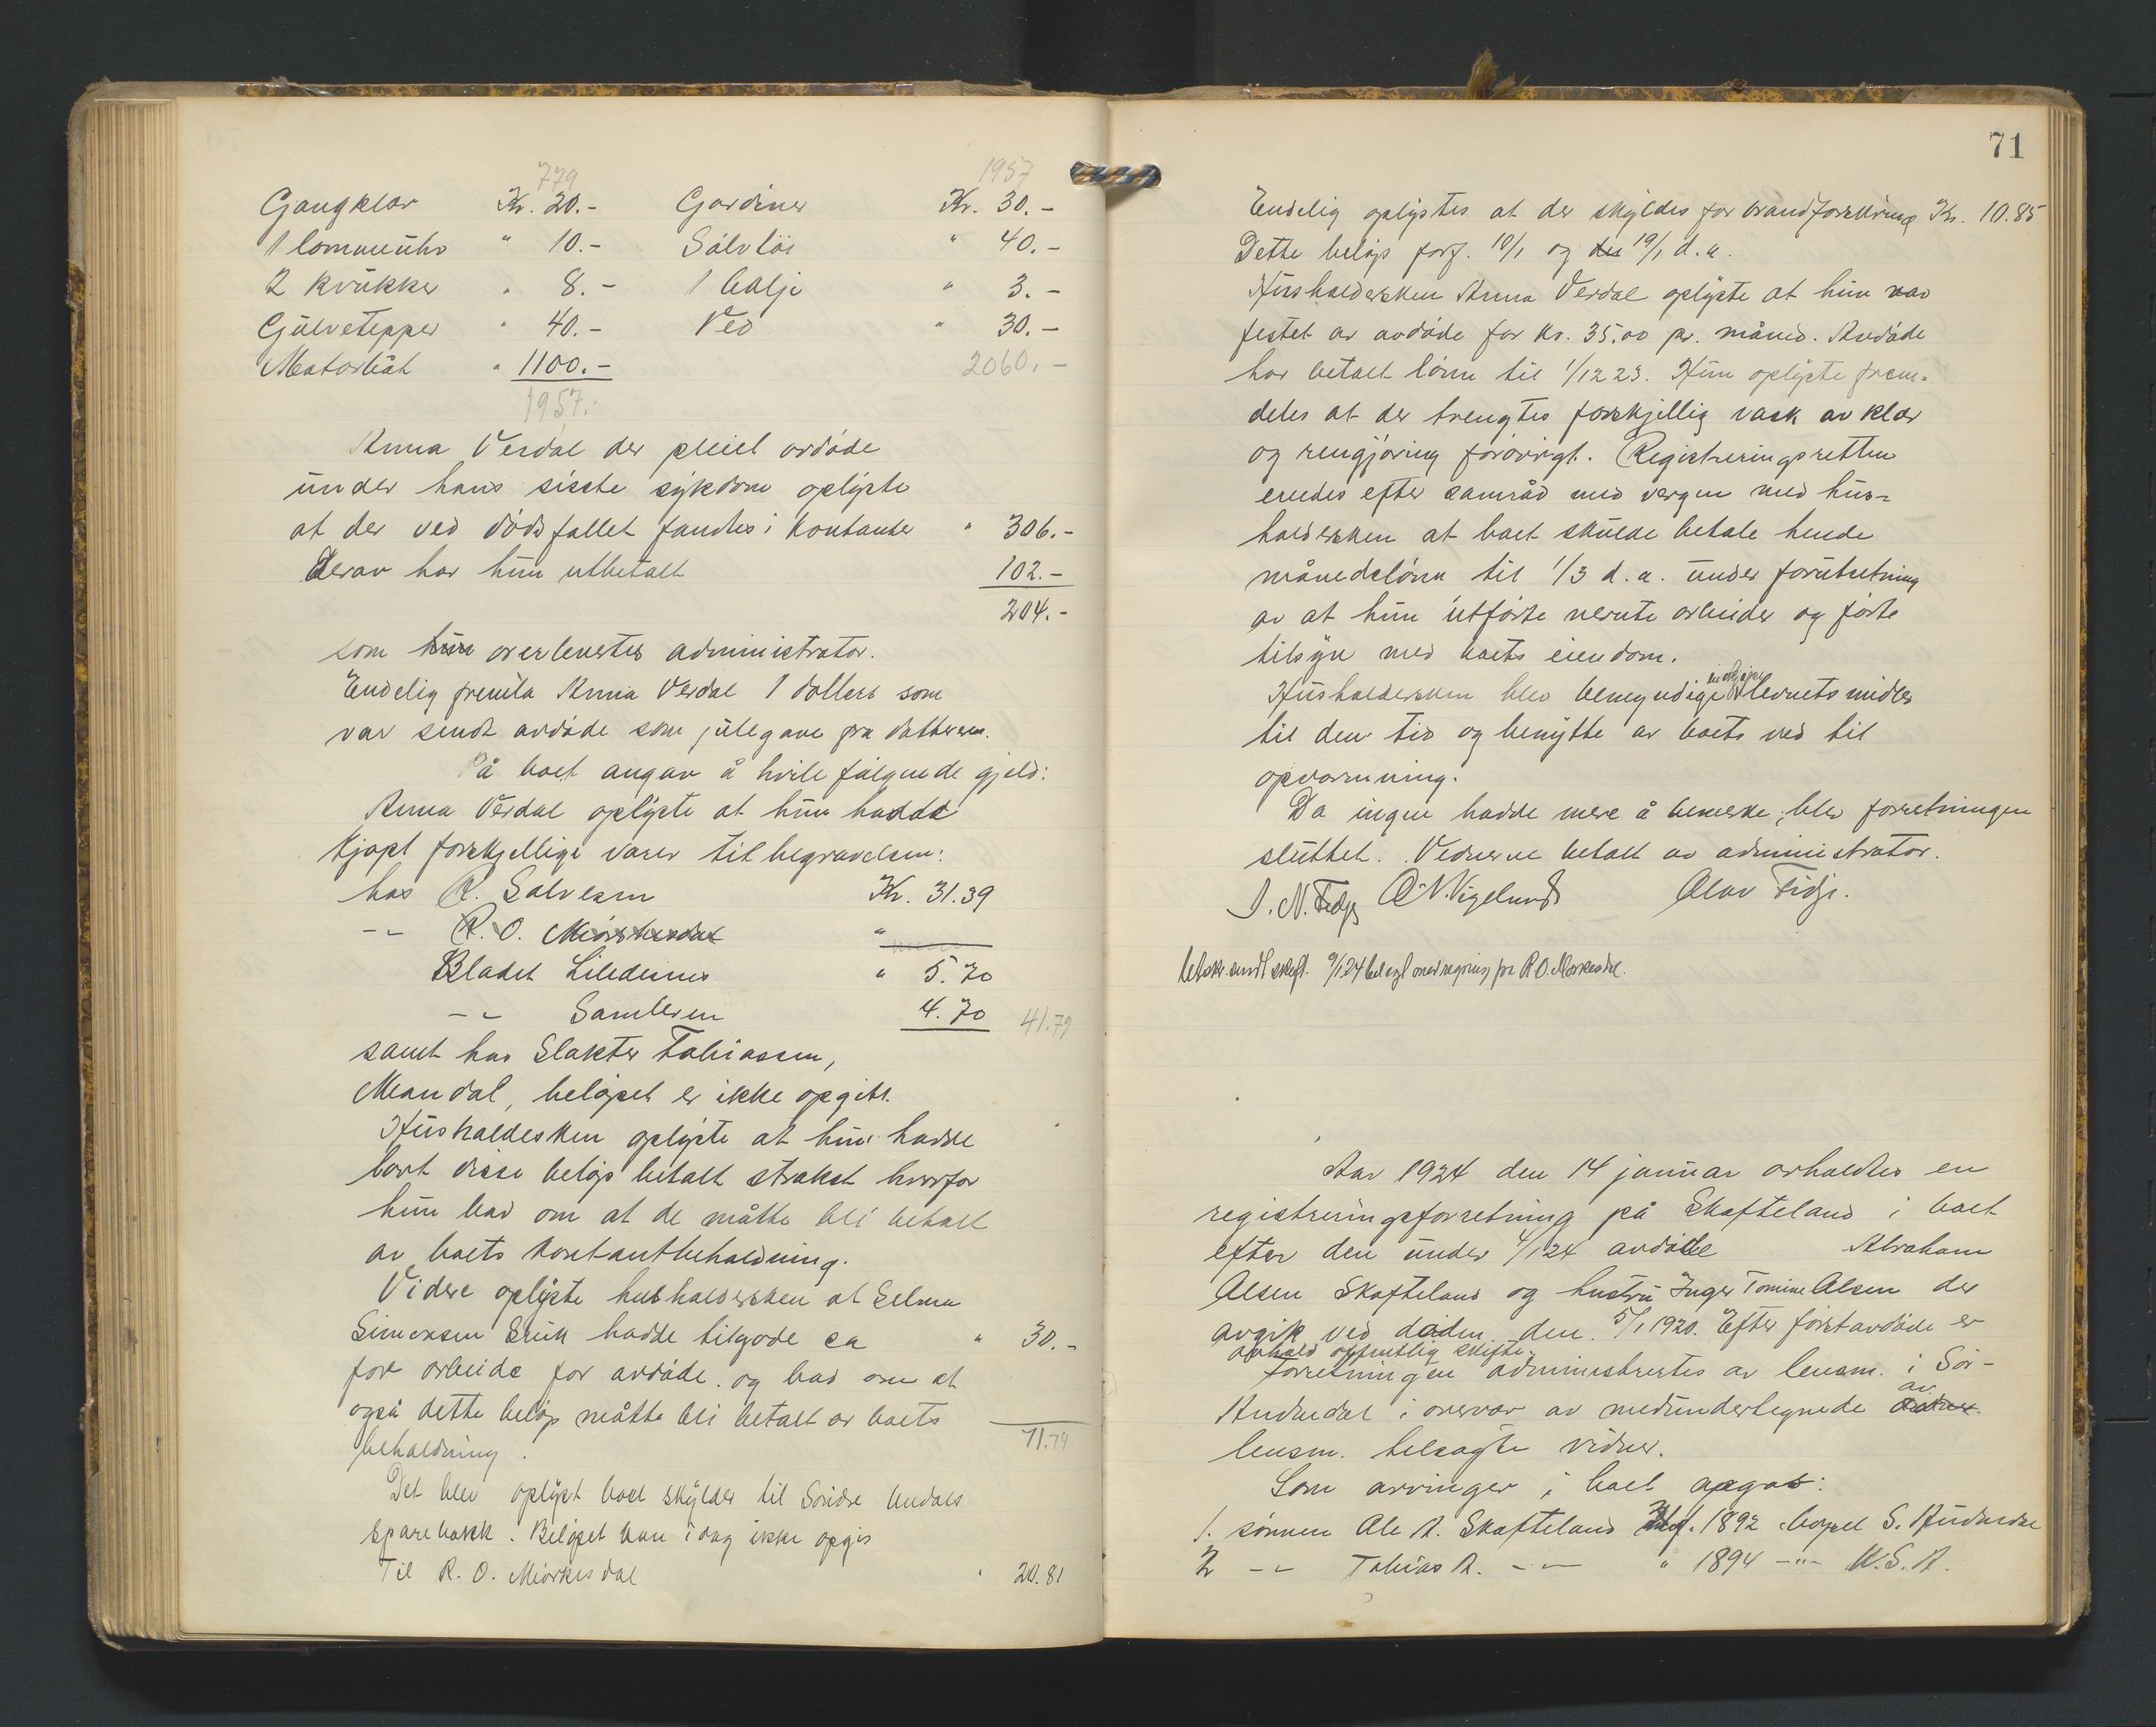 779
Gangklær Kr. 20.-
1 lommeuhr " 10.-
2 krukker " 8.-
Gulvetepper " 40.-
Motorbåt " 1100.-
1957.-
1957
Gardiner Kr. 30.-
Sølvtøi " 40.-
1 balje " 3.-
Ved " 30.-
2060.-
Anna Verdal der pleiet avdøde
under hans siste sykdom oplyste
at der ved dødsfallet fandtes i kontanter " 306.-
Derav har hun utbetalt 102.-
204.-
som hun overlevertes administrator.
Endelig fremla Anna Verdal 1 dollars som
var sendt avdøde som julegave fra datteren.
På boet angav å hvile følgende gjeld:
Anna Verdal oplyste at hun hadde
kjøpt forskjellige varer til begravelsen:
hos R. Salvesen Kr. 31.39
-"- R. O. Miørkesdal "
Bladet Lindesnes " 5.70
-"- Samleren 4.70 41.79
samt hos Slakter Tobiassen,
Mandal, beløpet er ikke opgitt.
Husholdesken oplyste at hun hadde
lovt disse beløp betalt strakst hvorfor
hun bad om at de måtte bli betalt
av boets kontantbeholdning.
Videre oplyste husholdersken at Selma
Simonsen Bruk hadde tilgode ca " 30.-
for arbeide for avdøde og bad om at
også dette beløp måtte bli betalt av boets
beholdning. 71.79
Det blev oplyst boet skylder til Søndre Undals
Sparebank. Beløpet kan i dag ikke opgis
Til R. O. Miørkesdal " 20.81
71
Endelig oplystes at der skyldes for brandforsikring Kr. 10.85
Dette beløp forf. 10/1 og des 19/1 d.a.
Husholdersken Anna Verdal oplyste at hun var
festet av avdøde for kr. 35.00 pr. måned. Avdøde
har betalt lønn til 1/12 23. Hun oplyste frem-
deles at der trengtes forskjellig vask av klær
og rengjøring forøvrigt. Registreringsretten
enedes efter samråd med vergen med hus-
holdersken at boet skulde betale hende
månedslønn til 1/3 d.a. under forutsetning
av at hun utførte nevnte arbeider og førte
tilsyn med boets eiendom.
Husholdersken blev bemyndiget indkjøpe levnetsmidler
til den tid og benytte av boets ved til
opvarmning.
Da ingen hadde mere å bemerke, blev forretningen
sluttet. Vidnerne betalt av administrator.
J. N. Fidje O. N. Vigeland Olav Fidje.
bekr. sendt skift. 9/1 24 bel egl. med regning fra R O. Mørkesdal.
Aar 1924 den 14 januar avholdtes en
registreringsforretning på Skofteland i boet
efter den under 4/1 24 avdøde Abraham
Olsen Skofteland og hustru Inger Tomine Olsen der
avgik ved døden den 5/1 1920. Efter førstavdøde er
avhold offentlig skifte.
Forretningen administrertes av lensm. i Sør-
Audnedal i overvær av medundertegnede av vidner
lensm. tilsagte vidner.
Som arvinger i boet opgas:
1. sønnen Ole A. Skofteland f. 1892 bopæl S. Audnedal
2 -"- Tobias A. -"- " 1894 -"- U.S.A.